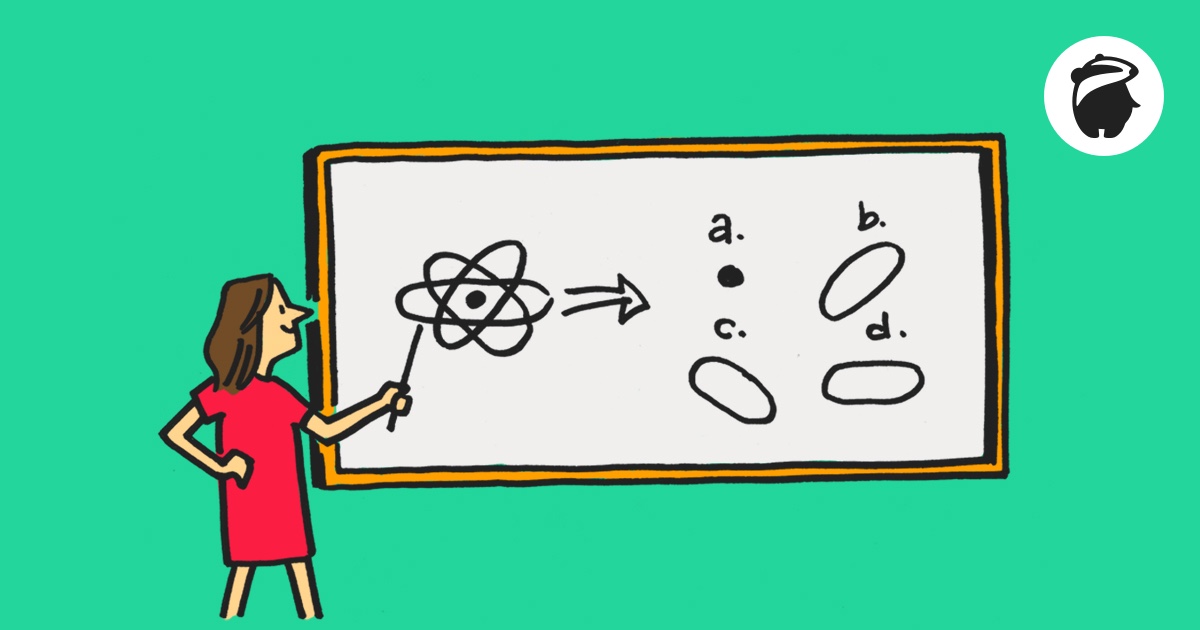 a.
b.
c.
d.